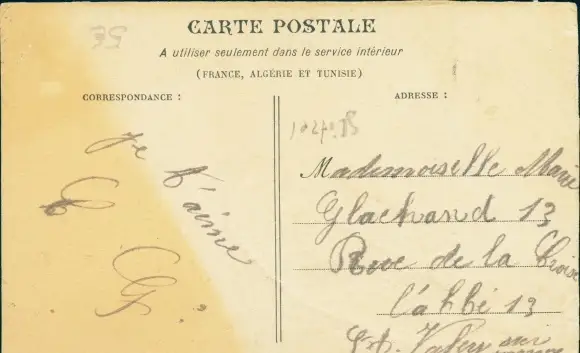 CARTE POSTALE
A utiliser seulement dans le service intérieur
(FRANCE, ALGÉRIE ET TUNISIE)
CORRESPONDANCE :
je t'aime
ADRESSE :
Mademoiselle Marie
Glachand 13
Rue de la Croix
l'abbé 13
St. Valery sur